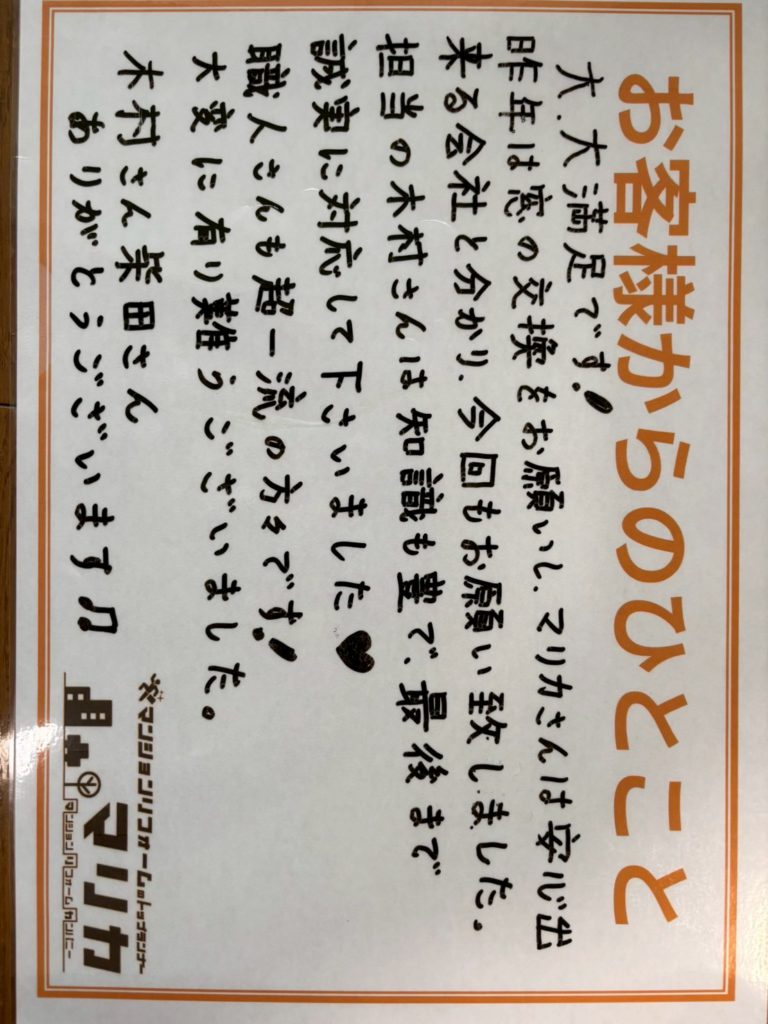 お客様からのひとこと
大、大満足です!
昨年は窓の交換をお願いし、マリカさんは安心出
来る会社と分かり、今回もお願い致しました。
担当の木村さんは知識も豊で、最後まで
誠実に対応して下さいました♥
職人さんも超一流の方々です!
大変に有り難うございました。
木村さん柴田さん
ありがとうございます♫
マンションリフォームのトップランナー
マリカ
マンションリフォームカンパニー